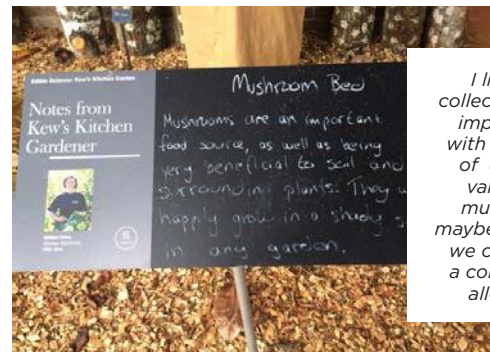 Edible Science: Kew's Kitchen Garden
Notes from
Kew's Kitchen
Gardener
Mushroom Bed
Mushrooms are an important
food source, as well as being
very beneficial to soil and
surrounding plants. They w
happily grow in a shady s
in any garden.
I li
collec
imp
with
of
va
mu
maybe
we c
a co
all